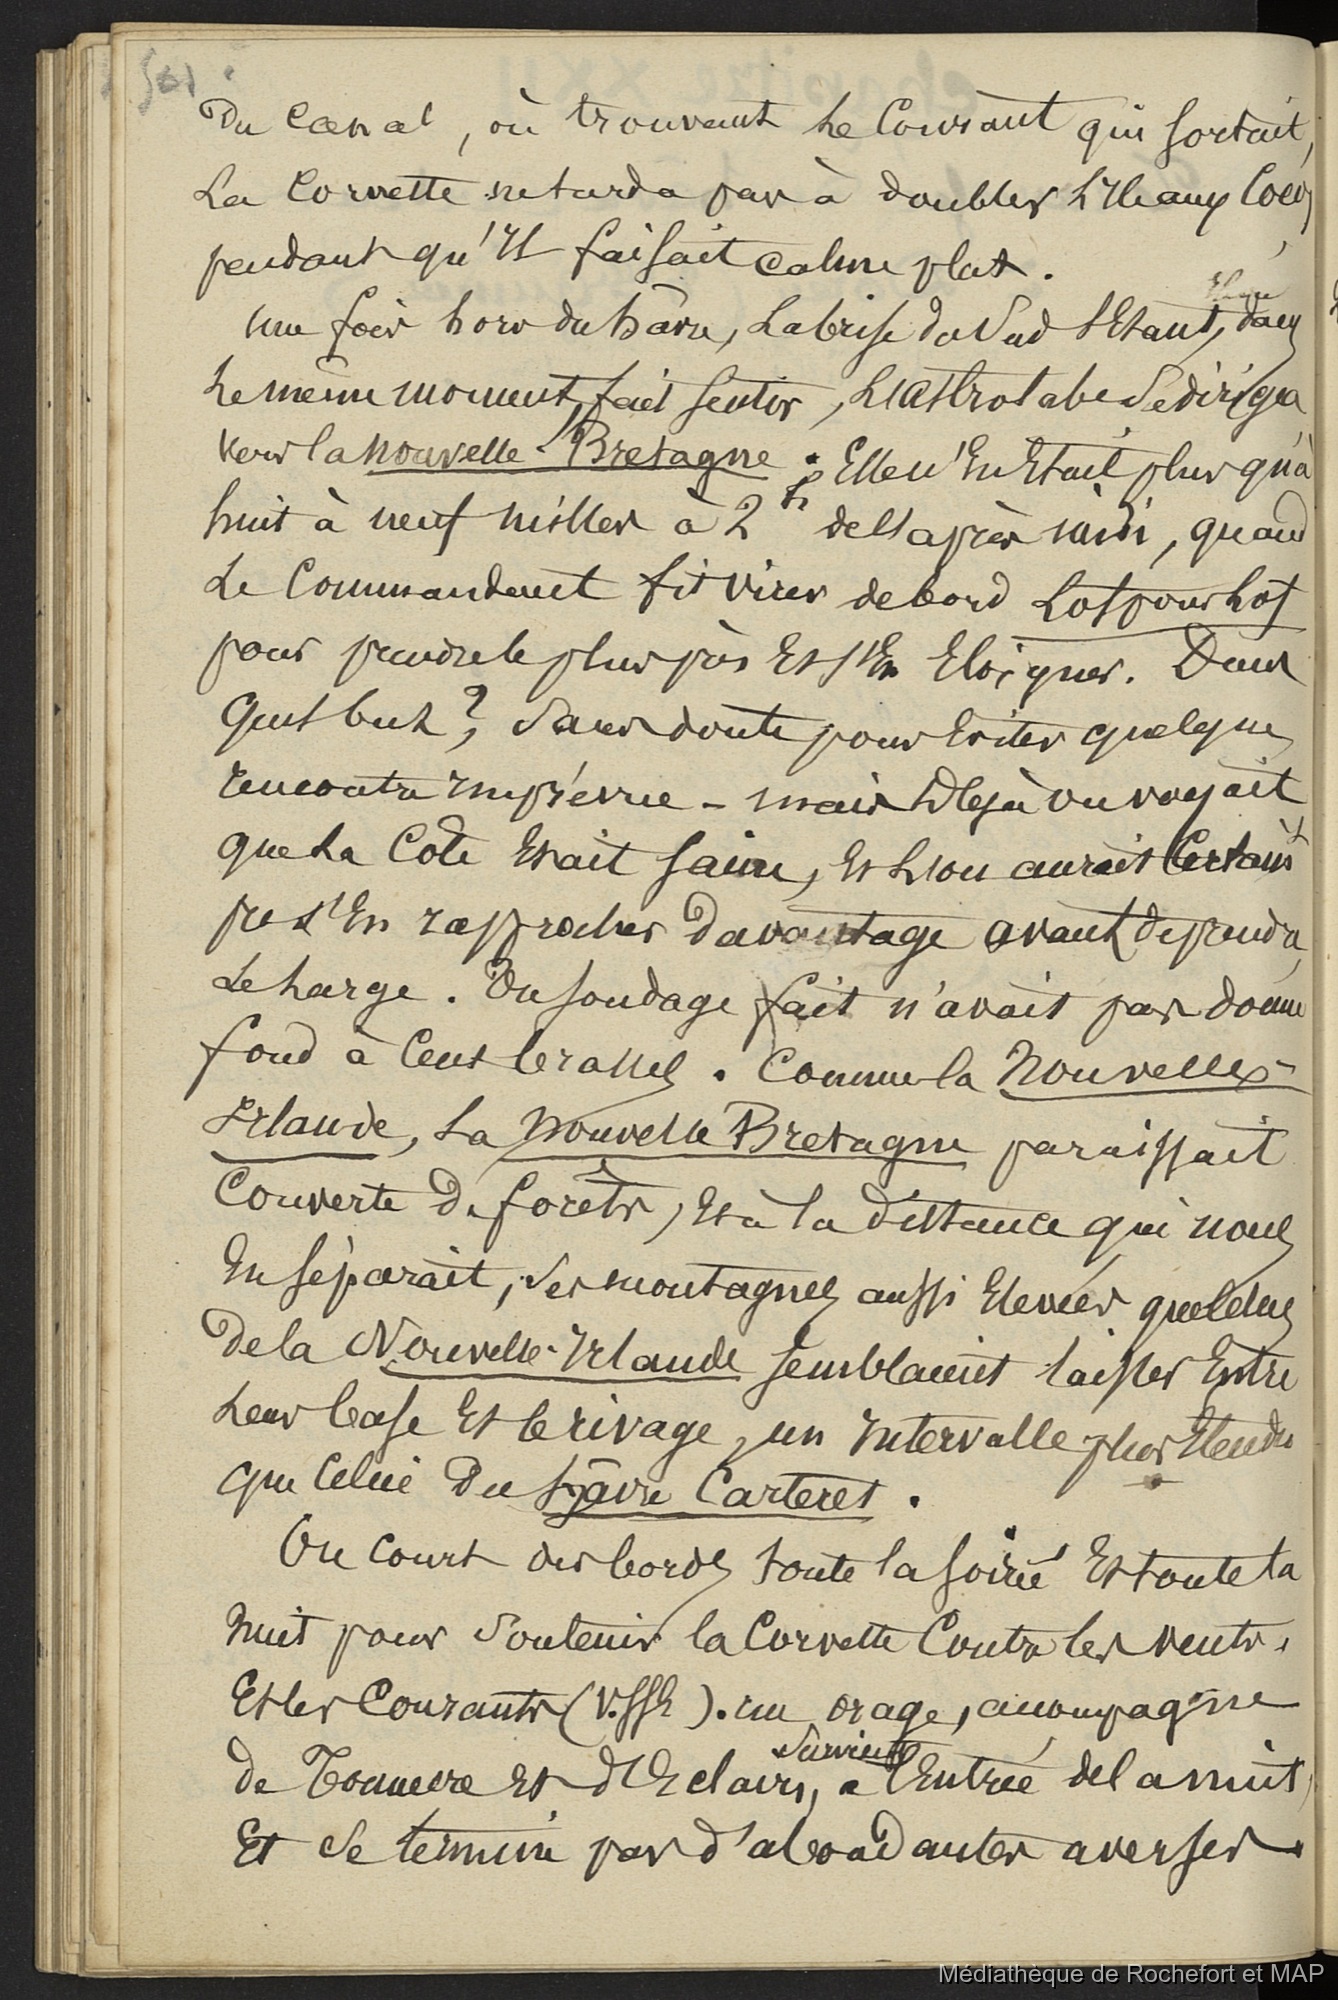 501
du canal, où trouvant le Courant qui sortait,
La Corvette ne tarda pas à doubler L'Ile aux Cocos,
pendant qu'Il faisait calme plat.
une fois hors du hâvre, La brise du Sud s'Etant, dans
Le même moment, fait sentir, L'Astrolabe se dirigea
vers la nouvelle-Bretagne. Elle n'En Etait plus qu'à
huit à neuf milles à 2h de l'après midi, quand
Le Commandant fit virer de bord Lof pour Lof
pour prendre le plus près Et s'En Eloigner. Dans
quel but?, Sans doute pour Eviter quelque
rencontre Imprévue - mais Déjà on voyait
que La Côte Etait saine, Et L'on aurait Certaint
pu s'En rapprocher Davantage avant de prendre
Le Large. Un sondage fait n'avait pas donné
fond à Cent brasses. Comme la Nouvelle-
Irlande, La Nouvelle Bretagne paraissait
Couverte De forêts, Et à la distance qui nous
En séparait, Ses montagnes aussi Elevées que celles
De la Nouvelle-Irlande semblaient laisser Entre
Leur base Et le rivage, un Intervalle plus Etendu
que Celui Du hâvre Carteret.
On court des bords toute la soirée Et toute la
Nuit pour Soutenir la Corvette Contre les vents
Et les Courants (V.SSE). un orage, accompagné
de Tonnerre Et d'Eclairs, survient à l'Entrée de la nuit,
Et se termine par d'abondantes averses.
Médiathèque de Rochefort et MAP